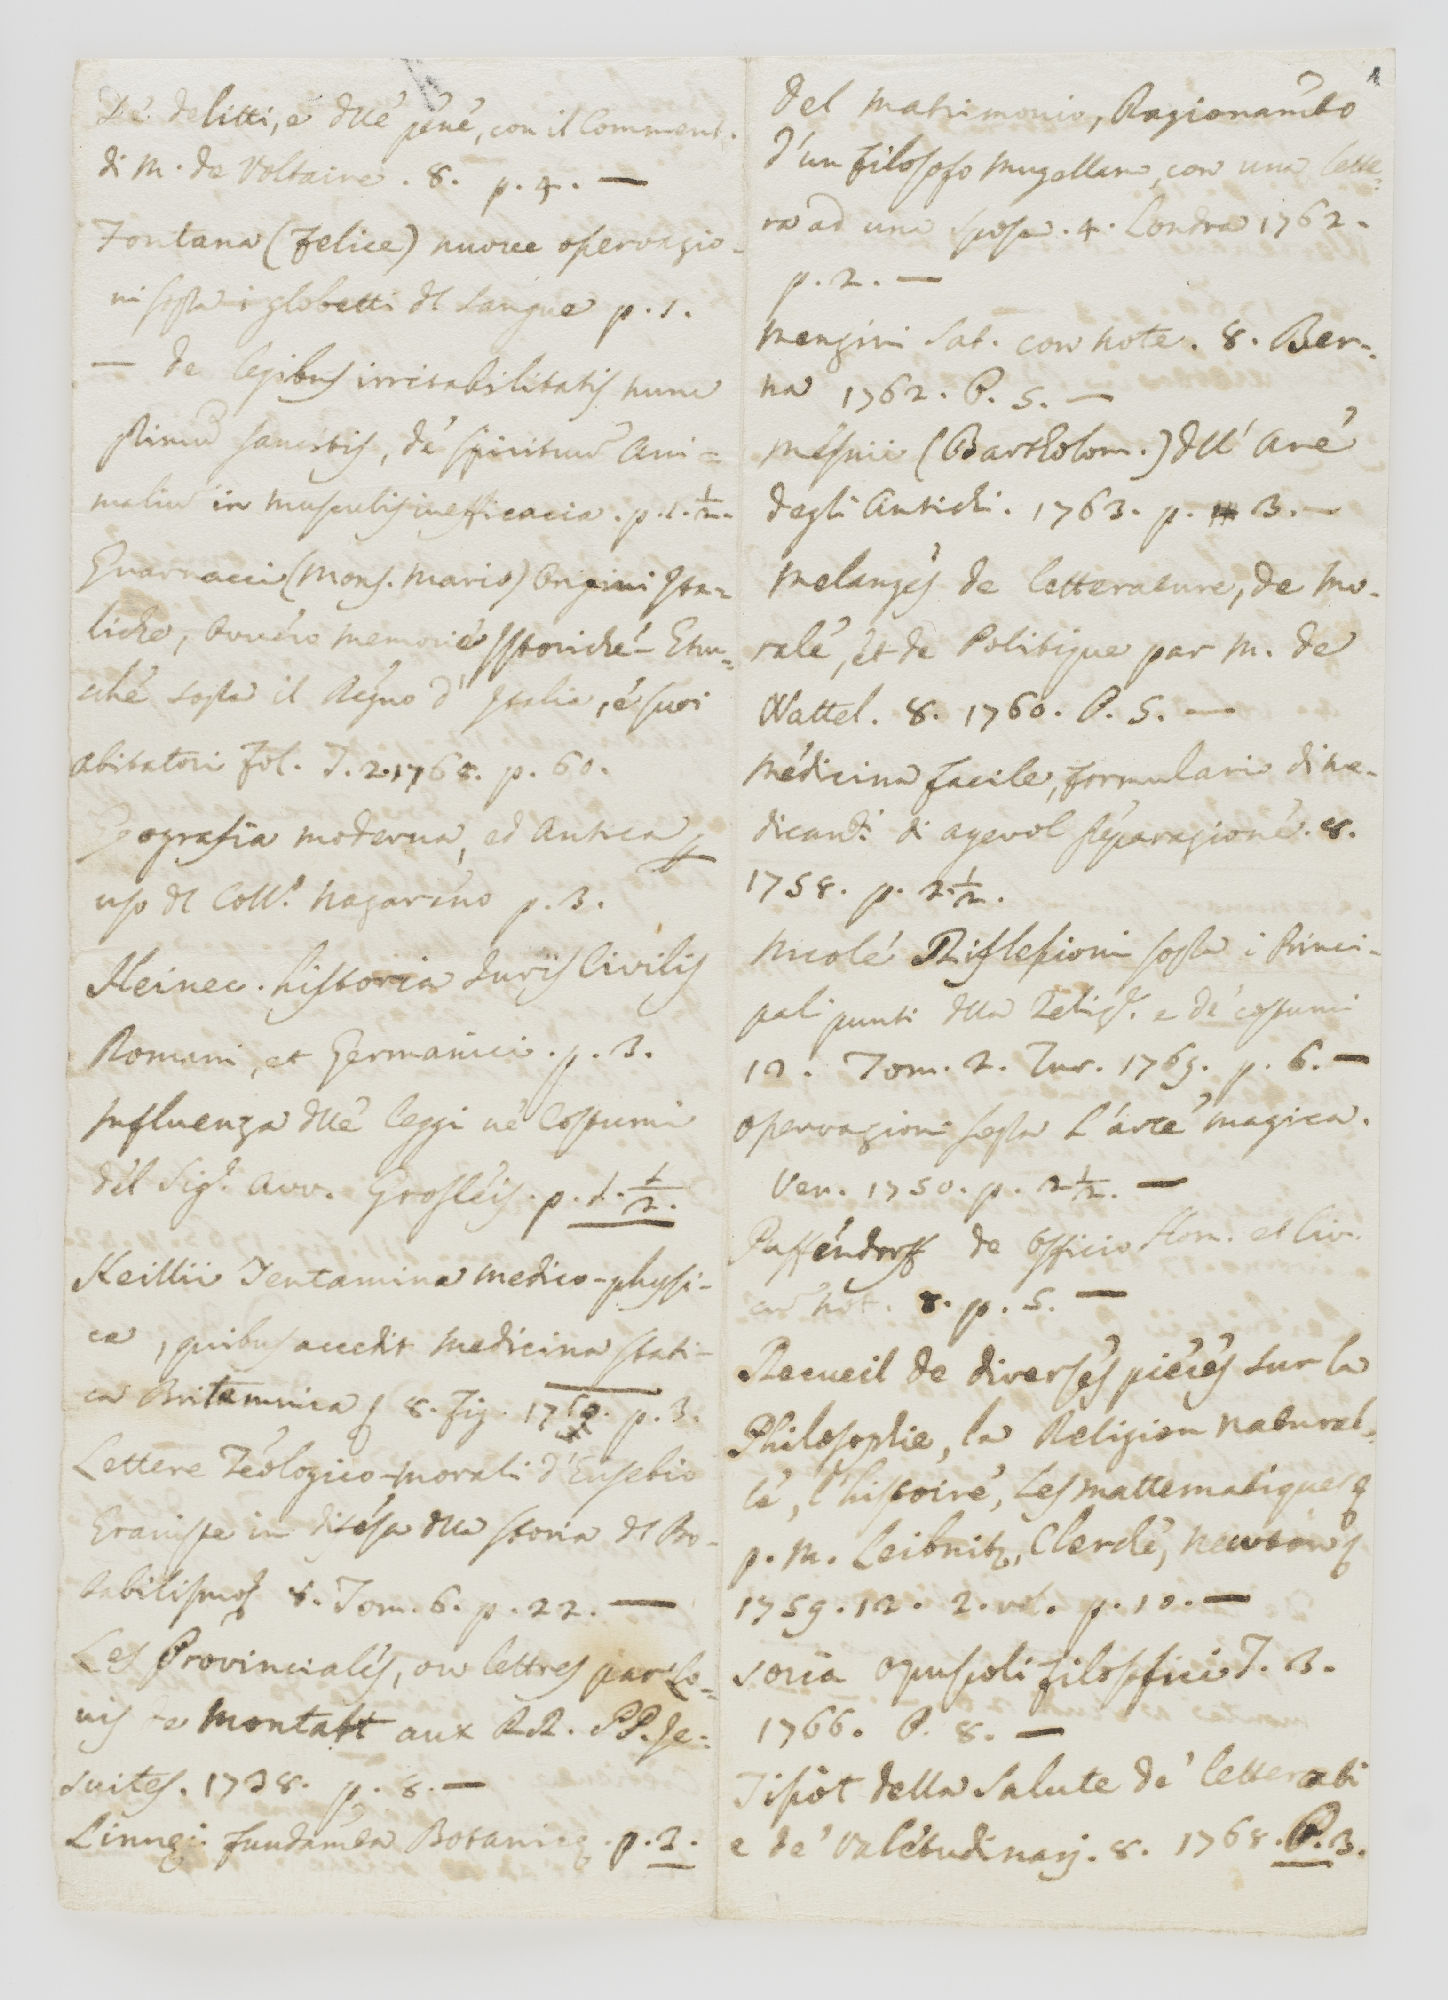 De' delitti, e dlle pene, con il Comment.
di M. de Voltaire. 8. p. 4. —
Fontana (Felice) nuove osservazio-
ni sopra i globetti dl sangue p. 1.
— de legibus irritabilitatis nunc
primū sancitis, de spirituū Ani=
maliū in musculis inefficacia. p. 1. ½.
Guarnacci (Mons. Mario) Origini Ita=
liche, ovvero memorie Istoriche-Etru=
sche sopra il Regno d'Italia, e suoi
abitatori Fol. T. 2. 1768. p. 60.
Geografia moderna, ed Antica p
uso dl Coll.º Nazareno p. 3.
Heinec. historia Juris Civilis
Romani, et Germanici. p. 3.
Influenza dlle leggi ne' Costumi
del Sigr. Avv. Grosleis. p. 1. ½.
Keillii Tentamina medico-physi-
ca, quibus accedit medicina stati-
ca Britannica 8. Fig. p. 3.
Lettere Teologico-morali d'Eusebio
Eraniste in difesa dlla storia dl Pro-
babilismo 8. Tom. 6. p. 22. —
Les Provinciales, ou lettres par Lo=
uis de Montalt aux RR. PP. Je=
suites. 1738. p. 8. —
Linnęi fundamēta Botanicę. p. 3.
Del Matrimonio, Ragionamēto
d'un filosofo mugellano, con una lette=
ra ad una sposa. 4. Londra 1762.
p. 2. —
Menzini Sat. con note. 8. Ber-
na 1762. P. 5. —
Mesnii (Bartholom.) dll' Are
degli Antichi. 1763. p. 3. —
Melanges de letterature, de mo-
rale, et de Politique par M. de
Wattel. 8. 1760. P. 5. —
Medicina facile, formulario di me-
dicam̄ti di agevol preparazione. 8.
1758. p. 2 ½.
Nicole Riflessioni sopra i Princi-
pali punti dlla Relig. e de' costumi
12. Tom. 2. Tur. 1765. p. 6. —
Osservazioni sopra l'arte magica.
Ven. 1750. p. 2 ½. —
Puffendorff de Officio Hom. et Civ.
cū not. 8. p. 5. —
Recueil de diverses pieces sur la
Philosophie, la Religion naturel=
le, l'histoire, les mattematiques
p. M. Leibnitz, Clerche, Newton
1759. 12. 2. vol. p. 10. —
Soria opuscoli filosofici T. 3.
1766. P. 8. —
Tissot della Salute de' letterati
e de' Valetudinarj. 8. 1768. P. 3.